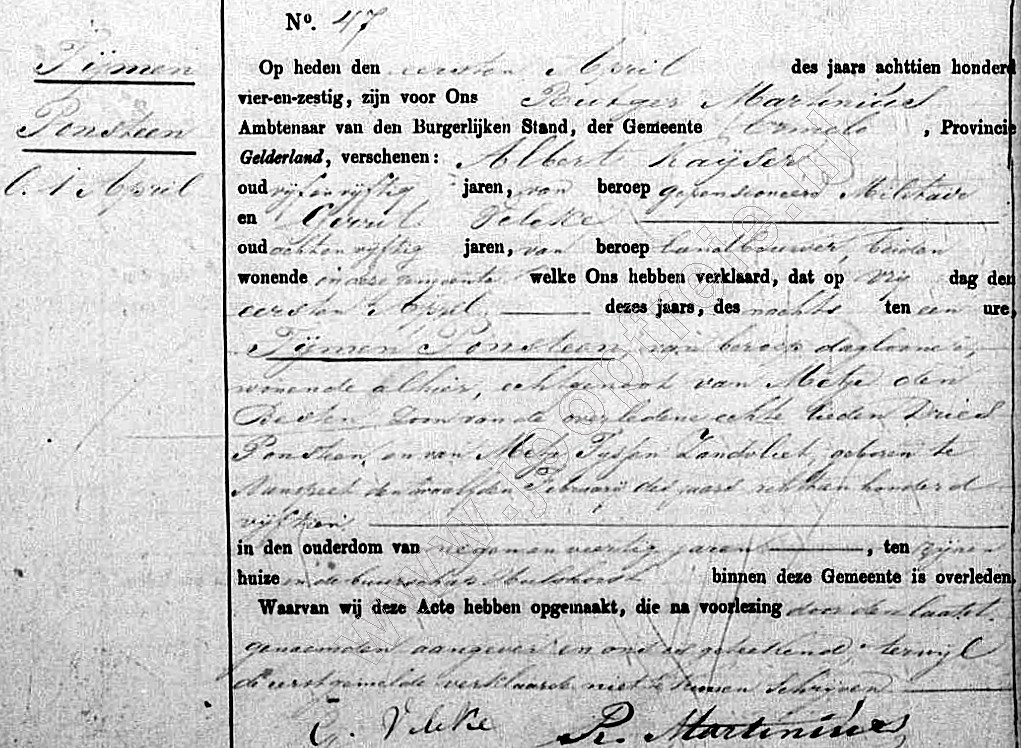 Nº. 47
Tijmen
Ponsteen
O. 1 April
Op heden den eersten April des jaars achttien honderd
vier-en-zestig, zijn voor Ons Rutger Martinius
Ambtenaar van den Burgerlijken Stand, der Gemeente Ermelo, Provincie
Gelderland, verschenen: Albert Kayser
oud vijf en vijftig jaren, van beroep gepensioneerd Militair
en Gerrit
oud acht en vijftig jaren, van beroep landbouwer, beiden
wonende in deze gemeente welke Ons hebben verklaard, dat op vrij dag den
eersten April dezes jaars, des nachts ten een ure,
Tijmen Ponsteen, van beroep daglooner,
wonende alhier, echtgenoot van Metje den
Besten, Zoon van de overledene echte lieden Dries
Ponsteen, en van Metje Tyssen Zandvliet, geboren te
Nunspeet den twaalfden Februarij des jaars achttien honderd
vijftien
in den ouderdom van negen en veertig jaren, ten zijnen
huize in de buurschap Hulshorst binnen deze Gemeente is overleden.
Waarvan wij deze Acte hebben opgemaakt, die na voorlezing door den laatst
genoemden aangever en ons is geteekend, terwijl
de eerstgemelde verklaarde niet te kunnen schrijven
R. Martinius